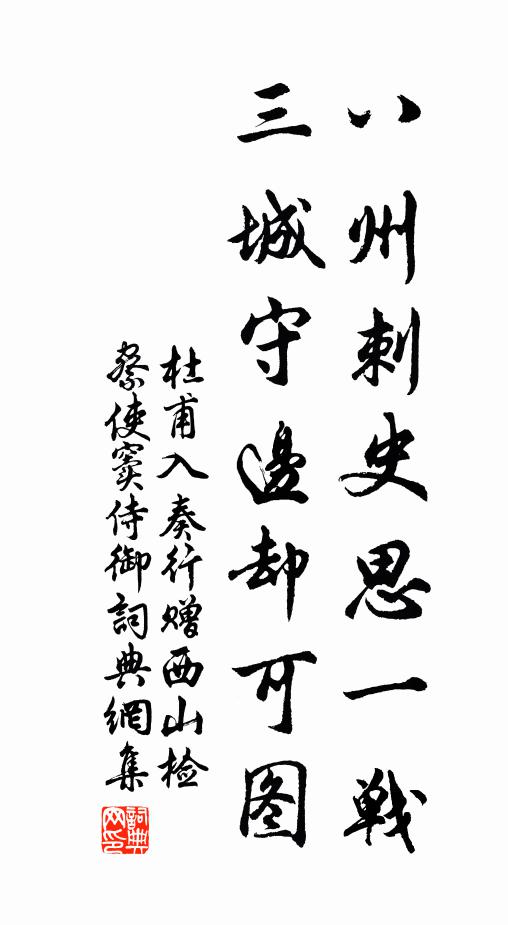 八州刺史思一戰
三城守邊却可图
杜甫入奏行赠西山检
察使窦侍御詞典網集
詞典
网印